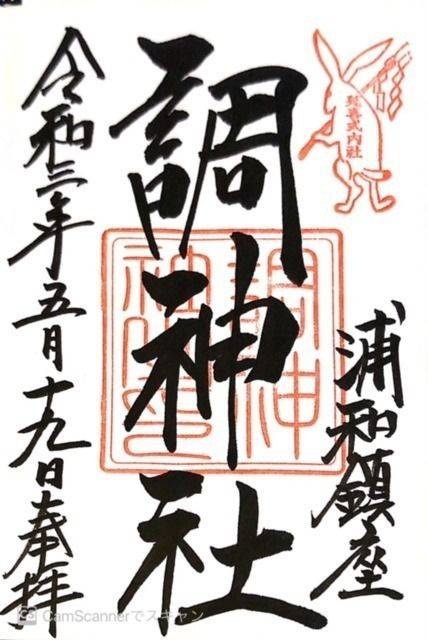 延喜式内社
浦和鎮座
調神社
調神
社之印
令和三年五月十九日奉拝
CamScannerでスキャン